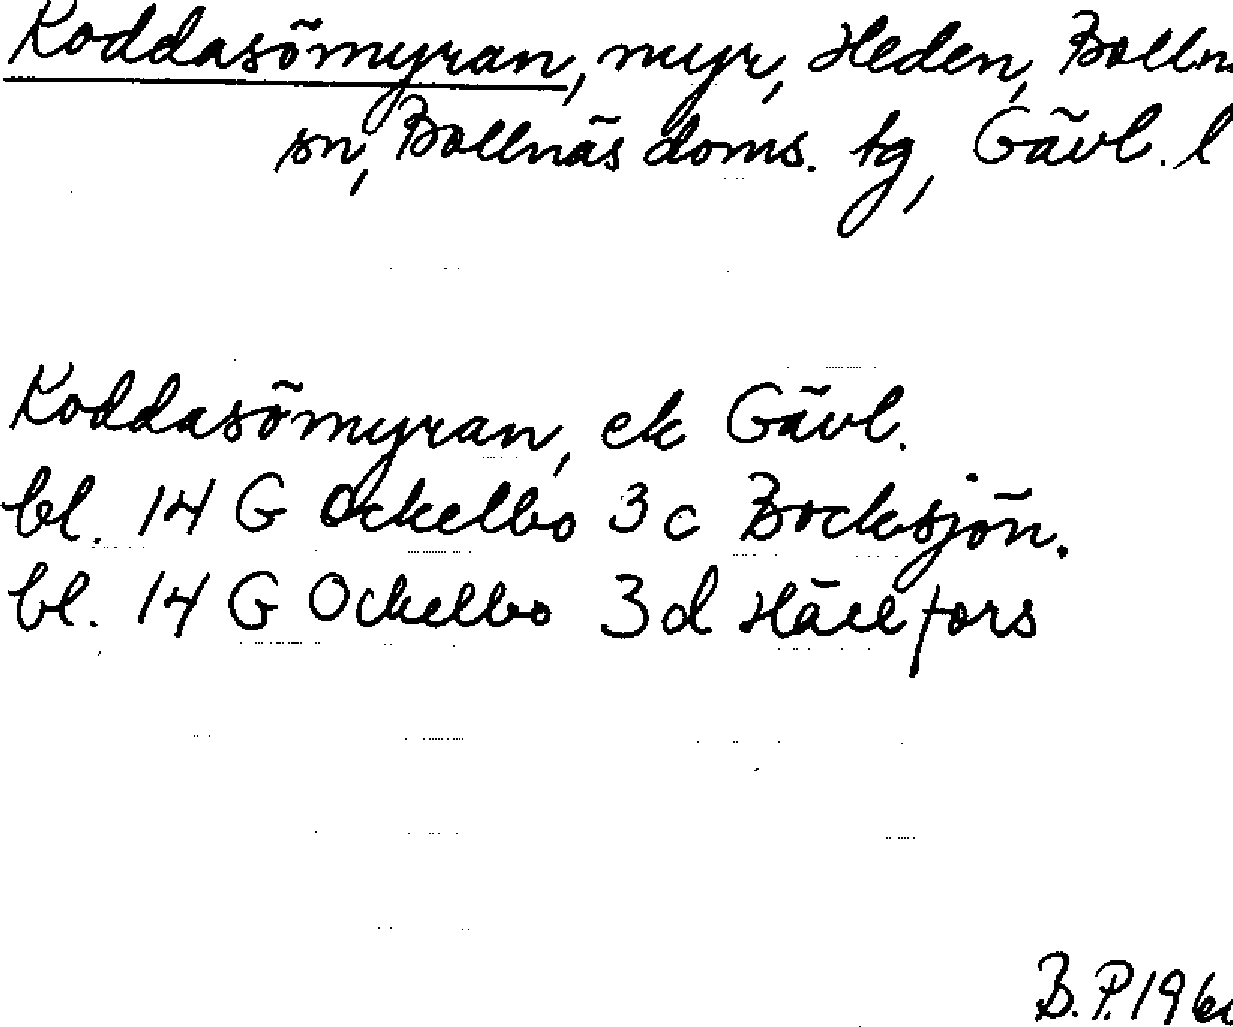 Koddasömyran, myr, Heden, Bolln
sn, Bollnäs doms. tg, Gävl. l
Koddasömyran, ek Gävl.
bl. 14 G Ockelbo 3 c Bocksjön.
bl. 14 G Ockelbo 3 d Hällfors
B.P. 196